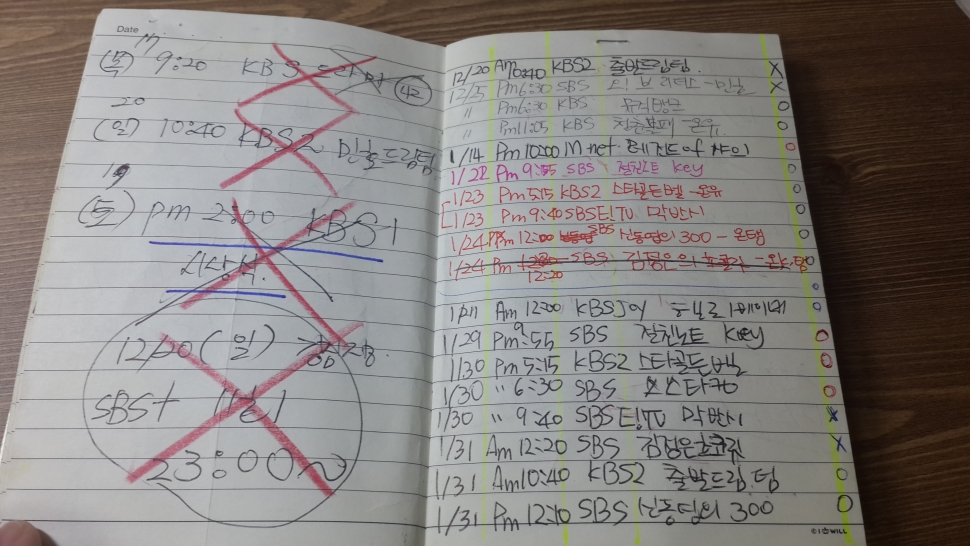 Date
17
(목) 9:20 KBS 드라마 (42)
20
(일) 10:40 KBS2 민호드림팀
19
(토) pm 2:00 KBS1
시상식
12/20 (일)
SBS+
23:00~
12/20 Am 10:40 KBS2 출발드림팀 X
12/25 Pm6:30 SBS X
〃 Pm6:30 KBS 뮤직뱅크 O
〃 Pm11:05 KBS 청춘불패-온유 O
1/14 Pm 10:00 M net 레전드 of 샤이 O
1/22 Pm 9:55 SBS 절친노트 key O
1/23 Pm 5:15 KBS2 스타골든벨 - 온유 O
1/23 Pm 9:40 SBSE!TV 막반시 O
1/24 Pm 12:00 SBS 신동엽의 300 - 온탬 O
1/24 Pm 12:20 SBS 김정은의 초콜릿 O
O
Am 12:00 KBSJoy O
1/29 Pm 9:55 SBS 절친노트 key O
1/30 Pm 5:15 KBS2 스타골든벨 O
1/30 〃 6:30 SBS 스타킹 O
1/30 〃 9:40 SBSE!TV 막반시 X
1/31 Am 12:20 SBS 김정은초코릿 X
1/31 Am 10:40 KBS2 출발드림팀 O
1/31 Pm 12:10 SBS 신동엽의 300 O